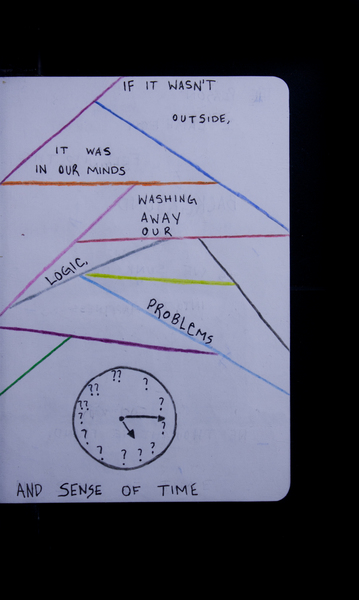 IF IT WASN'T
OUTSIDE,
IT WAS
IN OUR MINDS
WASHING
AWAY
OUR
LOGIC,
PROBLEMS
?? ?
?? ?
?? ?
? ?
? ?
? ? ?
AND SENSE OF TIME